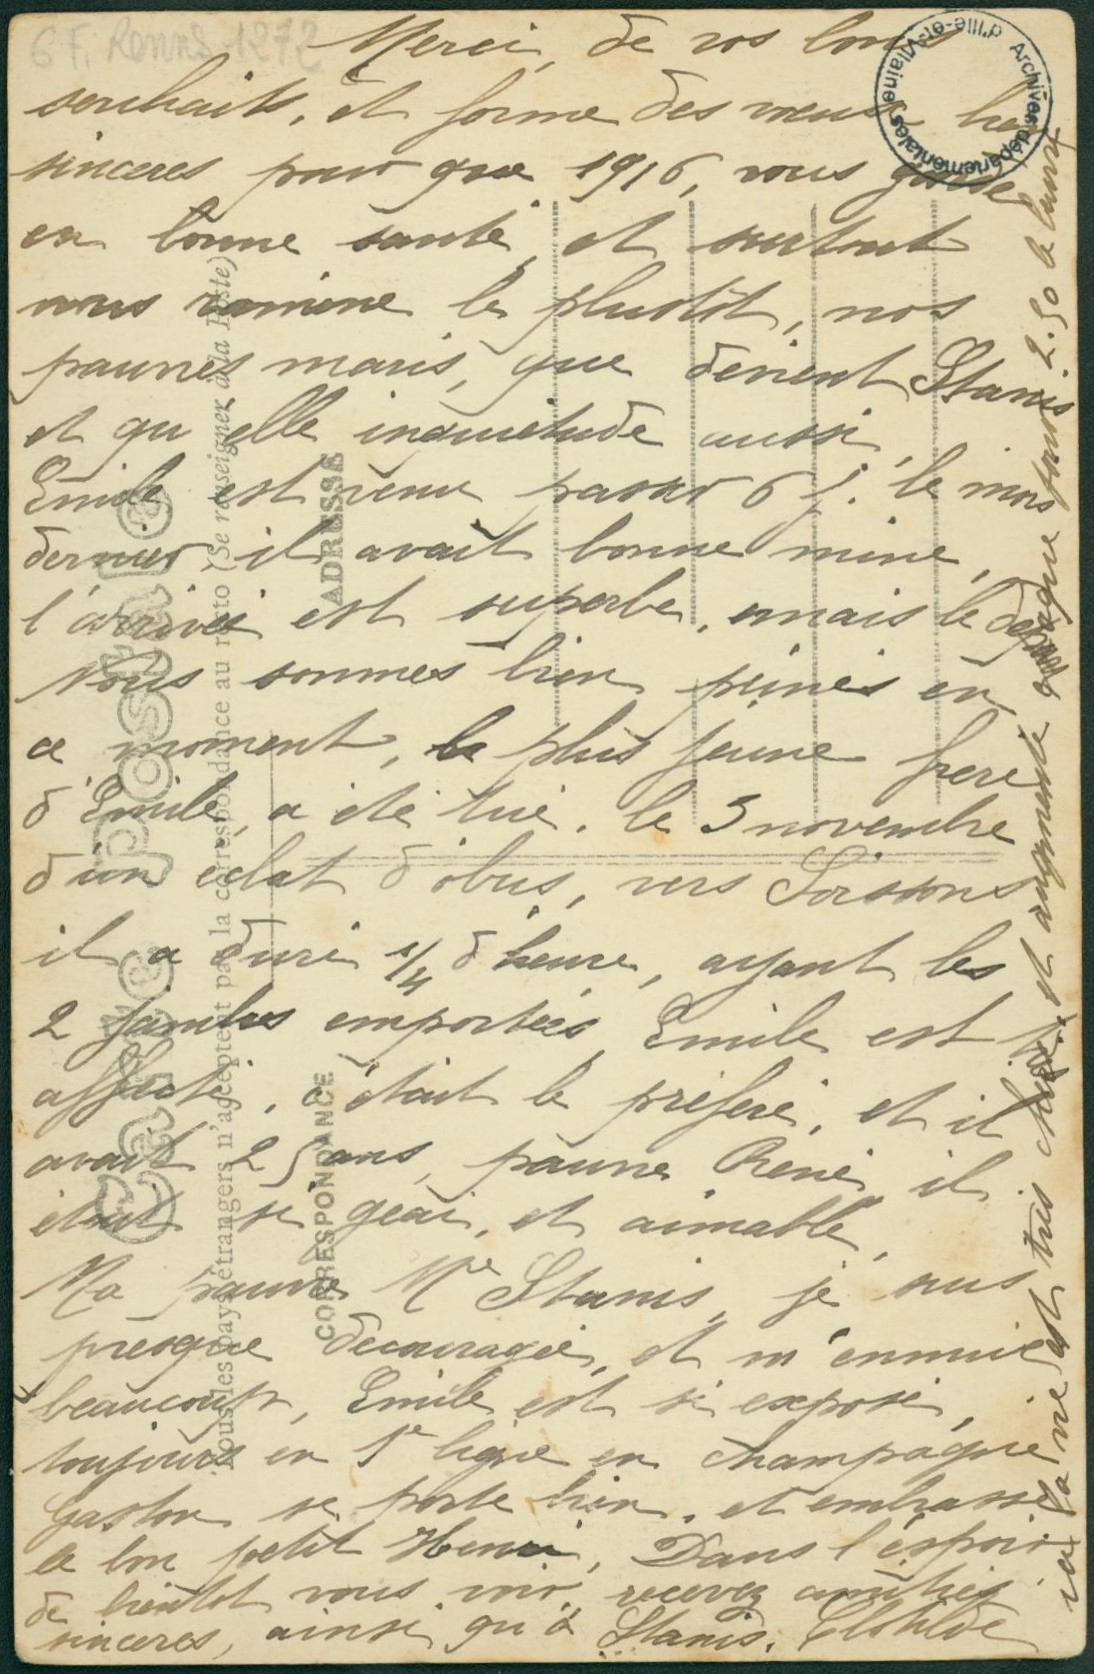 6 F. Rennes 1272
Archives départementales d'Ille-et-Vilaine
Merci, de vos bons
souhaits, et forme des vœux
sinceres pour que 1916, vous garde
en bonne santé, et surtout
nous ramène le plustôt, nos
pauvres maris, que devient Stanis
et qu'elle inquietude aussi,
Emile est venu passer 6 j. le mois
dernier il avait bonne mine,
l'arrivée est superbe, mais le
Nous sommes bien peinés en
ce moment, le plus jeune frere
d'Emile, a été tué, le 3 novembre
d'un eclat d'obus, vers Soissons
il a duré 1/4 d'heure, ayant les
2 jambes emportées, Emile est
affecté, c'était le préféré, et il
avait 25 ans, pauvre René, il
était si geai, et aimable,
Ma pauvre Me Stanis, je suis
presque decouragée, et m'ennuie
beaucoup, Emile est si exposé,
toujours en 1e ligne en champagne
Gaston se porte bien, et embrasse
le bon petit Henri, Dans l'espoir
de bientôt vous voir, recevez amitiés
sinceres, ainsi qu'à Stanis. Clotilde
ici la vie est très chère, et augmente chaque jour 2.50 le beurre
Carte postale
Tous les pays étrangers n'acceptent pas la correspondance au recto (Se renseigner à la Poste)
CORRESPONDANCE
ADRESSE